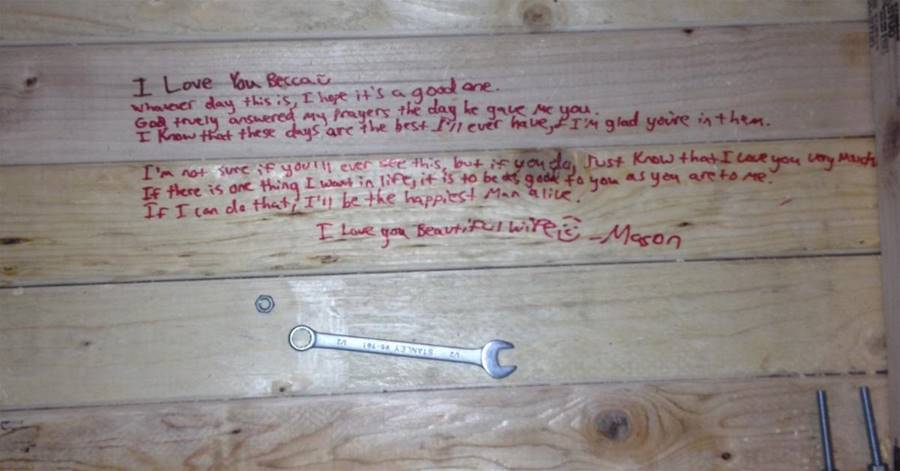 I Love You Becca
Whatever day this is, I hope it's a good one.
God truely answered my prayers the day he gave me you.
I know that these days are the best I'll ever have, & I'm glad you're in them.
I'm not sure if you'll ever see this, but if you do, Just know that I love you very much
If there is one thing I want in life, it is to be as good to you as you are to me.
If I can do that, I'll be the happiest Man alive.
I Love you Beautiful Wife -Mason
1/2 STANLEY 1/2